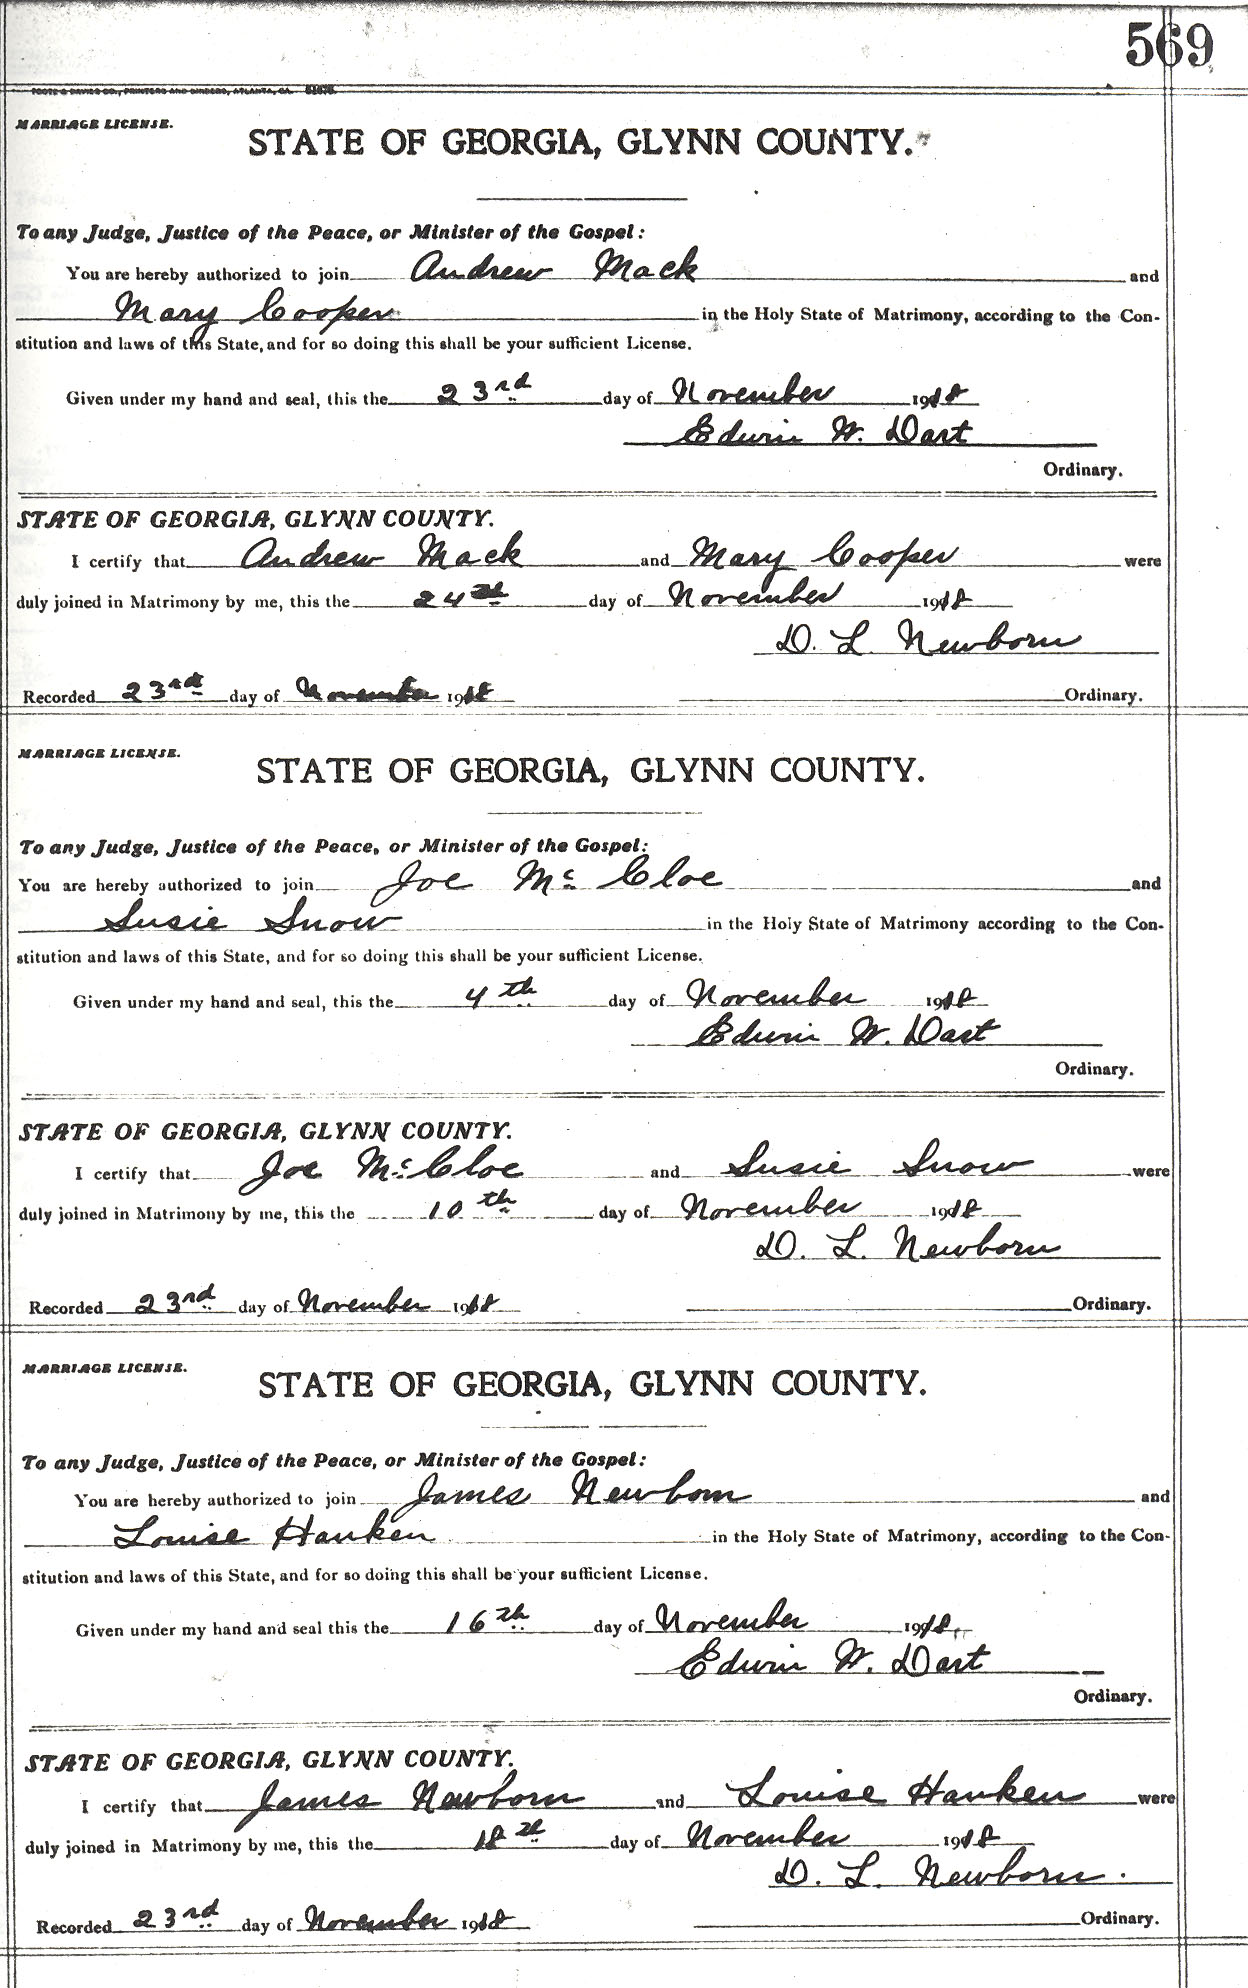 569
FOOTE & DAVIES CO., PRINTERS AND BINDERS, ATLANTA, GA.
MARRIAGE LICENSE.
STATE OF GEORGIA, GLYNN COUNTY.
To any Judge, Justice of the Peace, or Minister of the Gospel:
You are hereby authorized to join Andrew Mack and
Mary Cooper in the Holy State of Matrimony, according to the Con-
stitution and laws of this State, and for so doing this shall be your sufficient License.
Given under my hand and seal, this the 23rd day of November 1918
Edwin W. Dart
Ordinary.
STATE OF GEORGIA, GLYNN COUNTY.
I certify that Andrew Mack and Mary Cooper were
duly joined in Matrimony by me, this the 24th day of November 1918
D. L. Newborn
Recorded 23rd day of November 1918 Ordinary.
MARRIAGE LICENSE.
STATE OF GEORGIA, GLYNN COUNTY.
To any Judge, Justice of the Peace, or Minister of the Gospel:
You are hereby authorized to join Joe McCloe and
Susie Snow in the Holy State of Matrimony according to the Con-
stitution and laws of this State, and for so doing this shall be your sufficient License.
Given under my hand and seal, this the 4th day of November 1918
Edwin W. Dart
Ordinary.
STATE OF GEORGIA, GLYNN COUNTY.
I certify that Joe McCloe and Susie Snow were
duly joined in Matrimony by me, this the 10th day of November 1918
D. L. Newborn
Recorded 23rd day of November 1918 Ordinary.
MARRIAGE LICENSE.
STATE OF GEORGIA, GLYNN COUNTY.
To any Judge, Justice of the Peace, or Minister of the Gospel:
You are hereby authorized to join James Newborn and
Louise Hanken in the Holy State of Matrimony, according to the Con-
stitution and laws of this State, and for so doing this shall be your sufficient License.
Given under my hand and seal this the 16th day of November 1918
Edwin W. Dart
Ordinary.
STATE OF GEORGIA, GLYNN COUNTY.
I certify that James Newborn and Louise Hanken were
duly joined in Matrimony by me, this the 18th day of November 1918
D. L. Newborn.
Recorded 23rd day of November 1918 Ordinary.